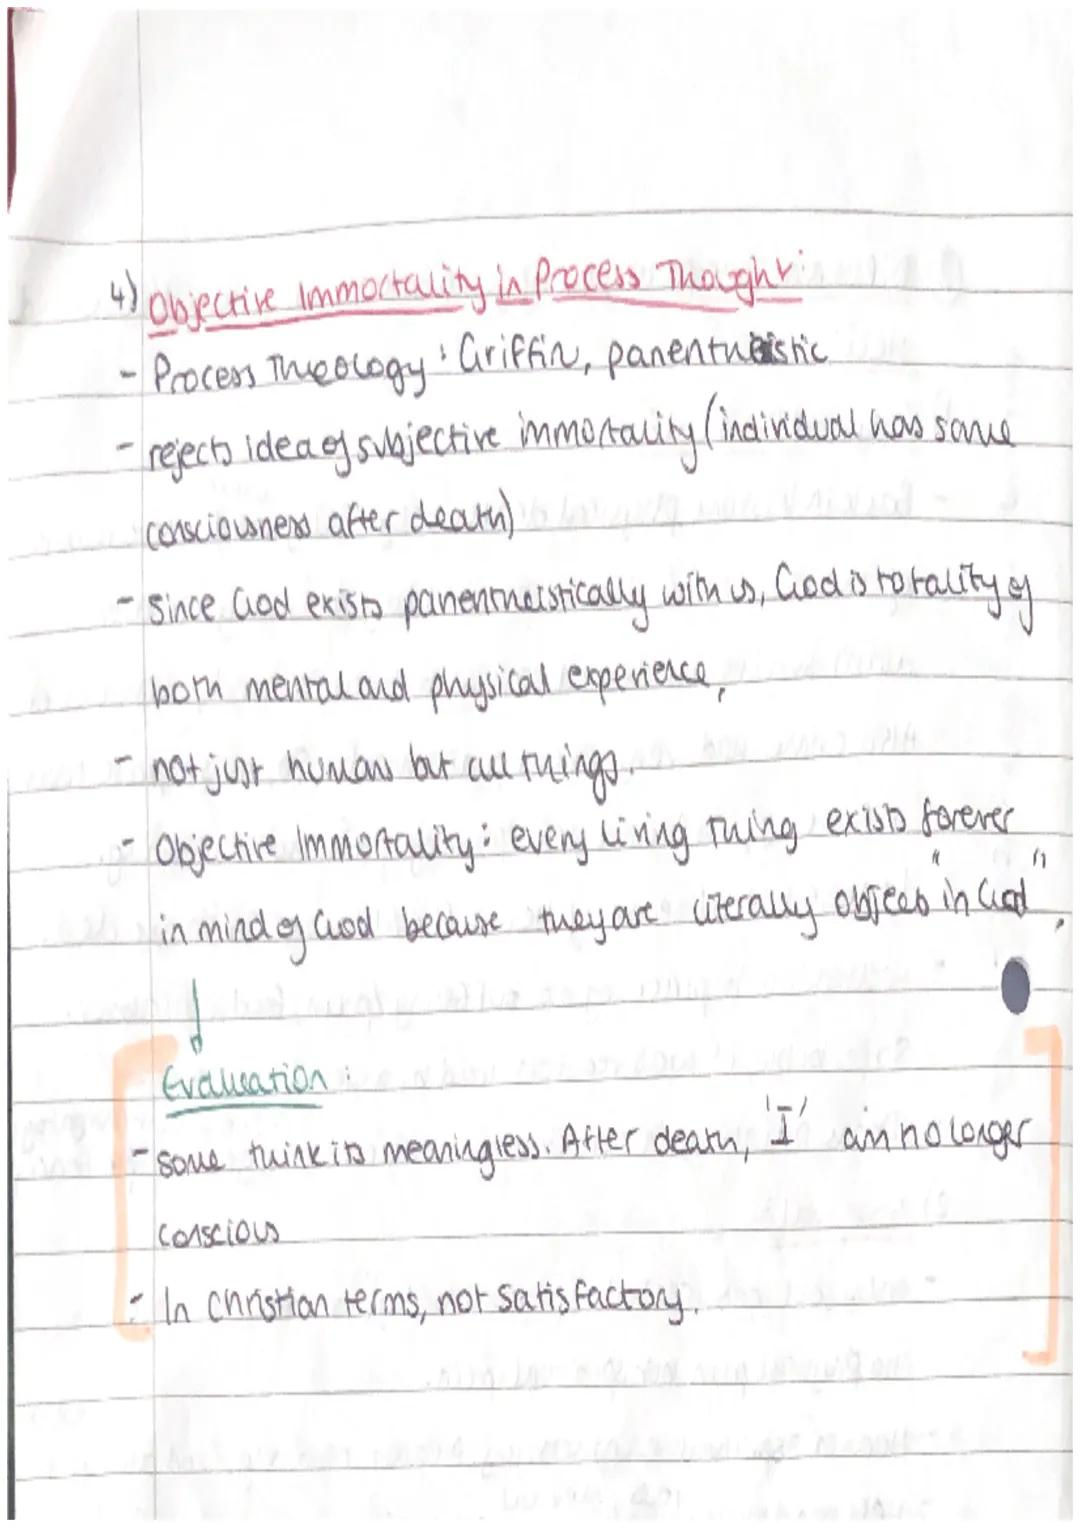 4) Objective Immortality in Process Thought:
- Process Theology: Griffin, panentheistic
- rejects idea of subjective immortality (individual has same
consciousness after death)
- Since God exists panentheistically with us, God is totality of
both mental and physical experience,
- not just humans but all things.
- Objective Immortality: every living thing exists forever
in mind of God because they are literally objects "in God",
Evaluation:
- some think its meaningless. After death, 'I' am no longer
conscious
- In Christian terms, not satisfactory.